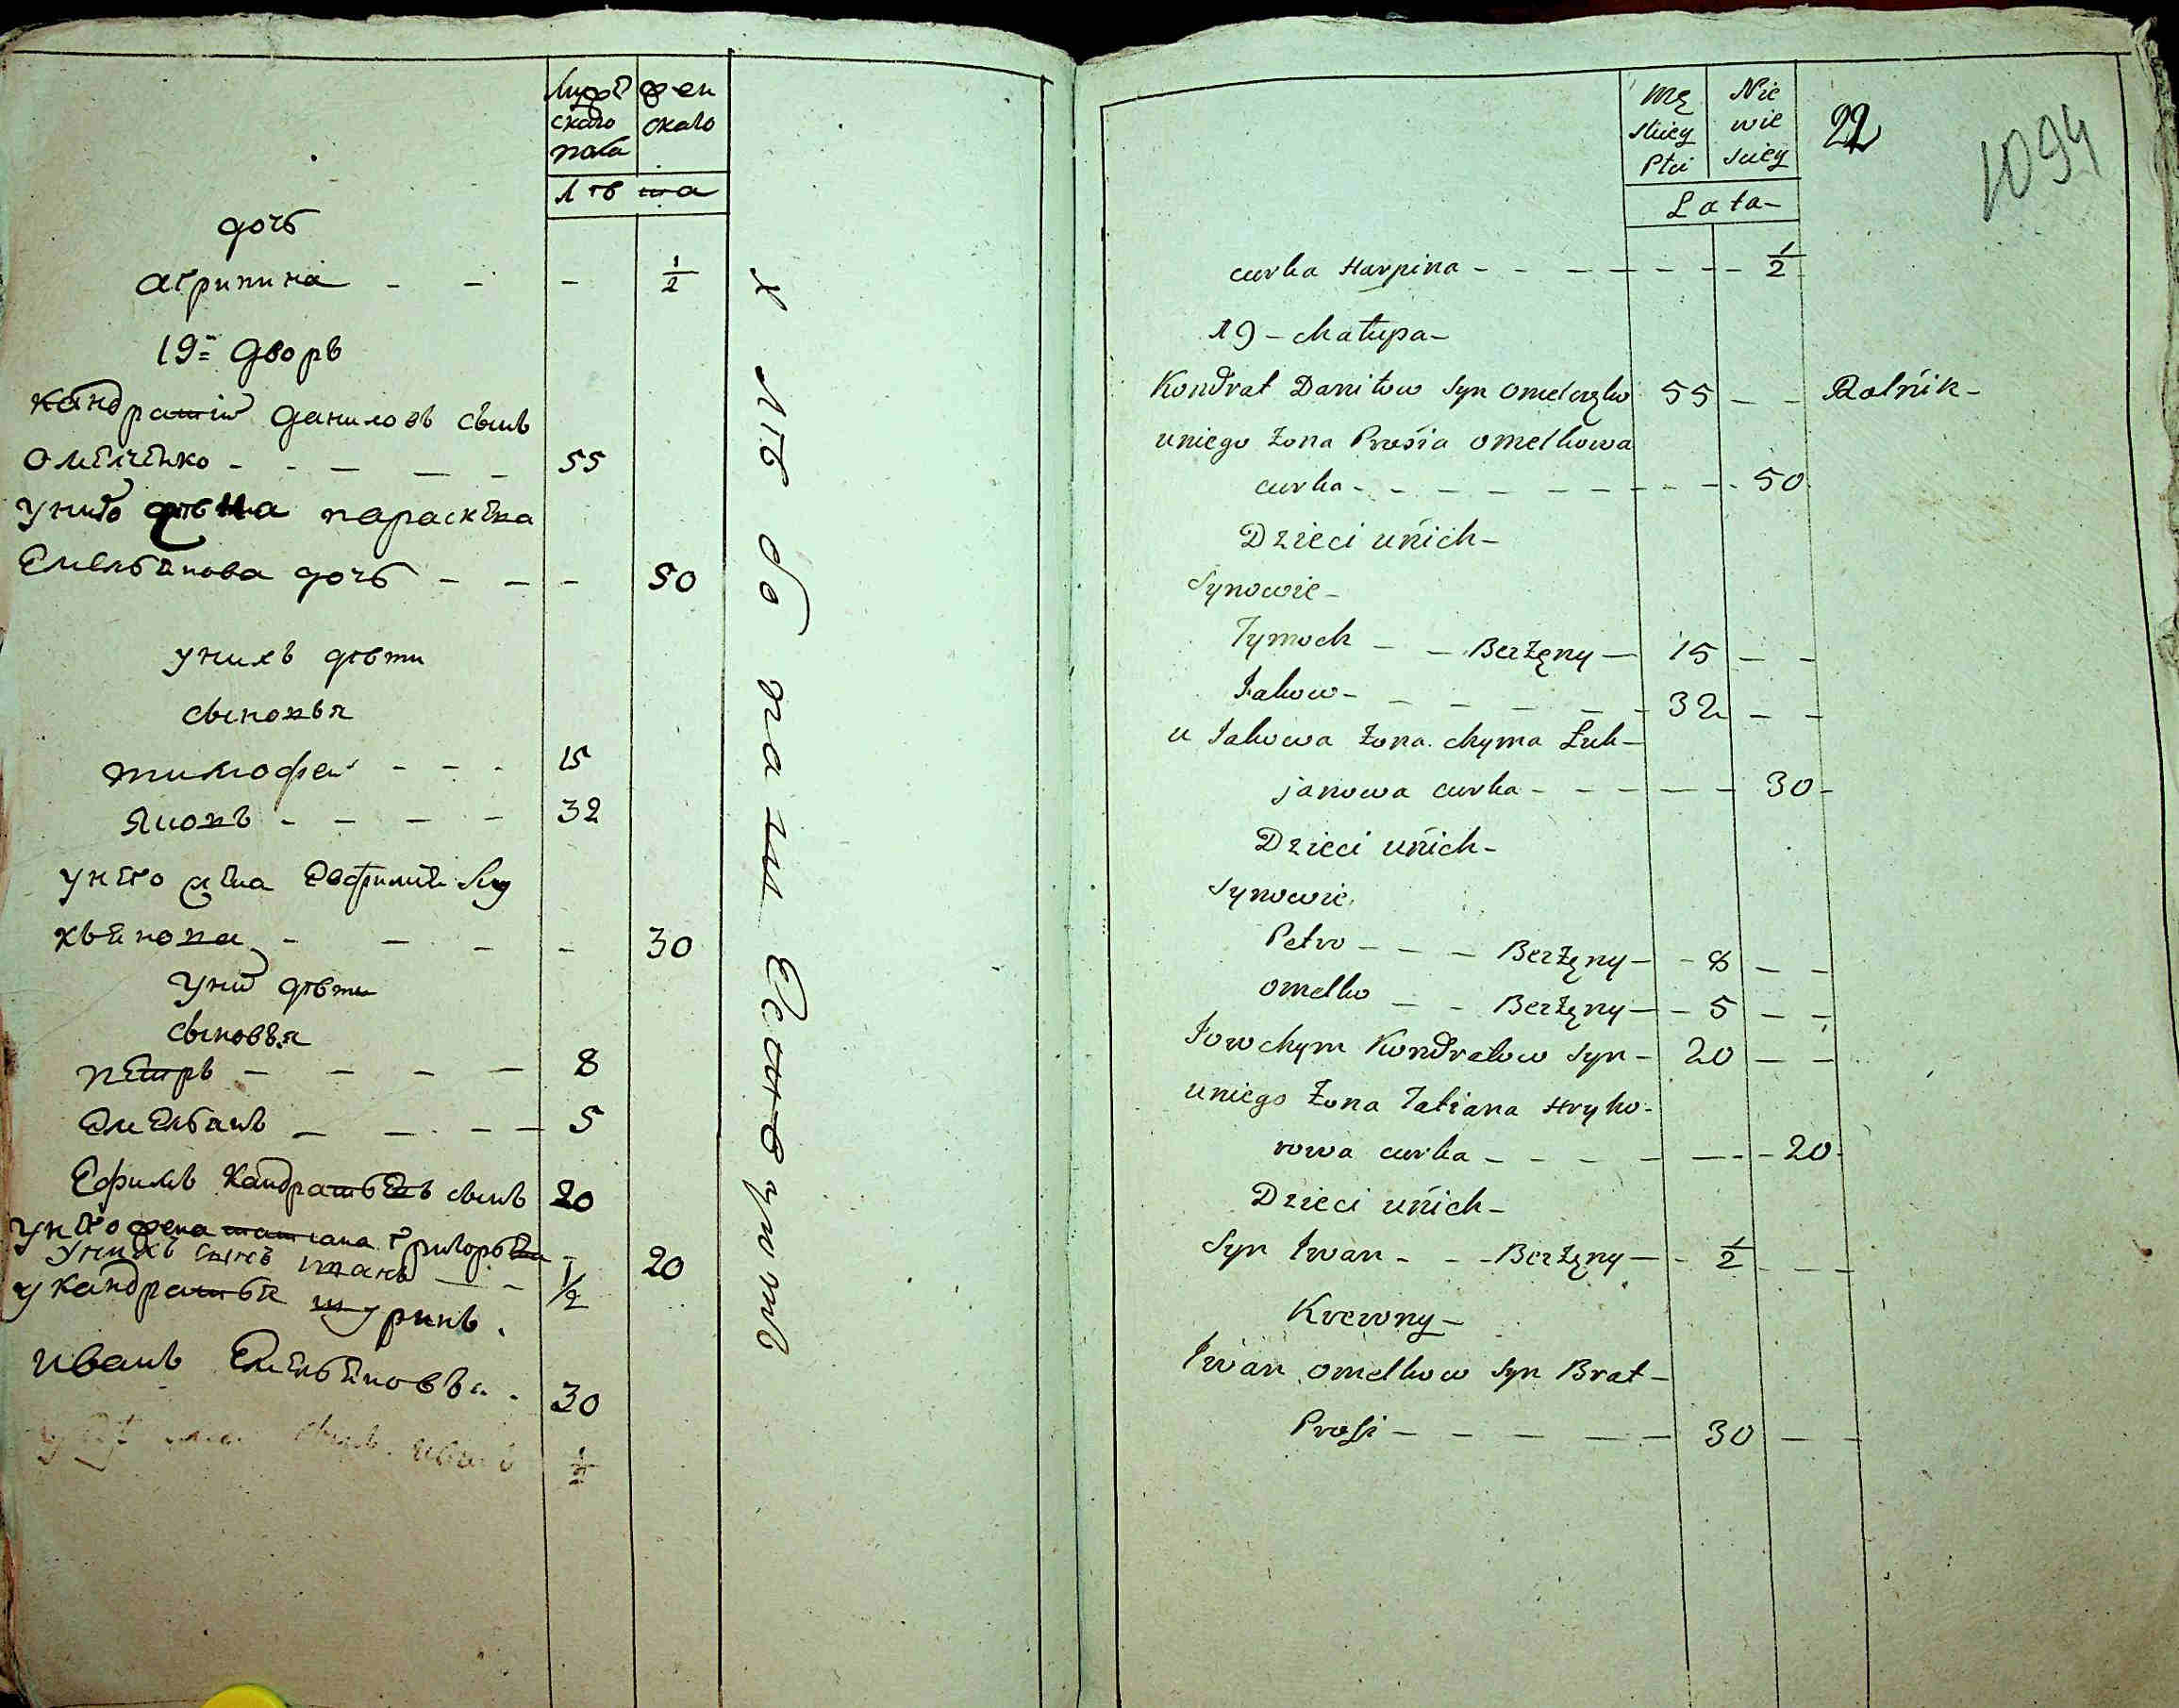 мужс жен
скаго скаго
пола
лѣта
дочь
агрипина - - - 1/2
19й дворъ
кандратій даниловъ сынъ
омельченко - - - - - 55
у него жена параскева
Емельянова дочь - - - 50
у нихъ дѣти
сыновья
тимофей - - - 15
яковъ - - - - 32
у него жена Евфимия лу
кьянова - - - - 30
у них дѣти
сыновья
петръ - - - - 8
Емельянъ - - - - 5
Ефимъ кандратьевъ сынъ 20
у него жена татиана григорьева - 20
у нихъ сынъ иванъ - - 1/2
у кандратья шуринъ.
иванъ Емельяновъ. 30
сынъ иванъ 1/2
хлѣбопашествуютъ
Mę Nie
skiey wie
Płci sciey
22
1094
Lata-
curka Harpina - - - - - - - 1/2
19 - Chałupa -
Kondrat Daniłow Syn Omelczęko 55 - - Rolnik -
uniego Żona Prosia Omelkowa
curka - - - - - - - - - - 50
Dzieci unich -
Synowie -
Tymoch - - Bezżęny - 15 - -
Jakow - - - - - - 32 - -
u Jakowa Żona Chyma Łuk -
janowa curka - - - - - 30 -
Dzieci unich -
Synowie
Petro - - - Bezżęny - - 8 - -
Omelko - - Bezżęny - - 5 - -
Jowchym Kondratow Syn - 20 - -
uniego Żona Tatiana Hryho -
rowa curka - - - - - - - 20 -
Dzieci unich -
Syn Iwan - - - Bezżęny - - 1/2 - - -
Krewny -
Iwan Omelkow Syn Brat -
Prosi - - - - - 30 - -